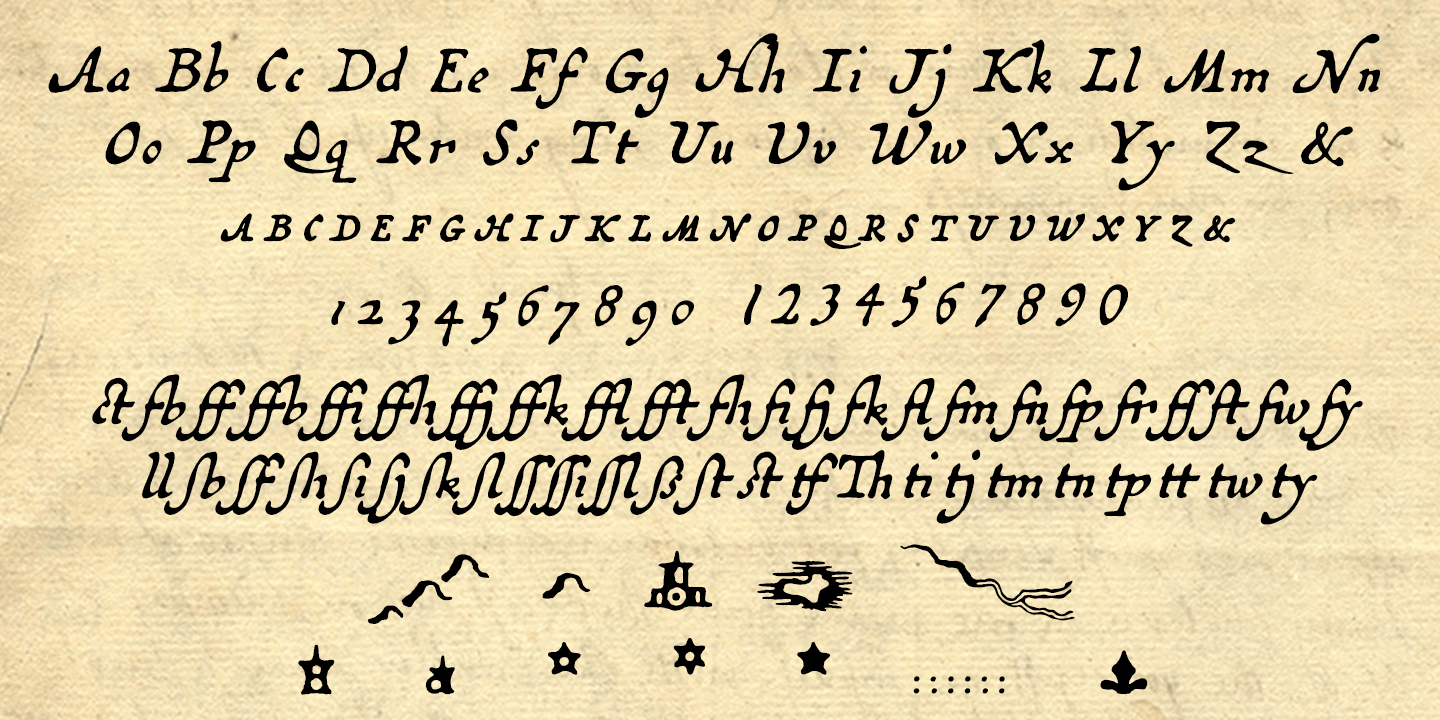 Aa Bb Cc Dd Ee Ff Gg Hh Ii Jj Kk Ll Mm Nn
Oo Pp Qq Rr Ss Tt Uu Vv Ww Xx Yy Zz &
A B C D E F G H I J K L M N O P Q R S T U V W X Y Z &
1 2 3 4 5 6 7 8 9 0 1 2 3 4 5 6 7 8 9 0
ct fb ff ffb ffi ffh ffj ffk ffl fft fh fi fj fk fl fm fn fp fr ſſ ft fw fy
ll ſb ſf ſh ſi ſj ſk ſl ſſ ſſi ſſl ß ſt st tf Th ti tj tm tn tp tt tw ty